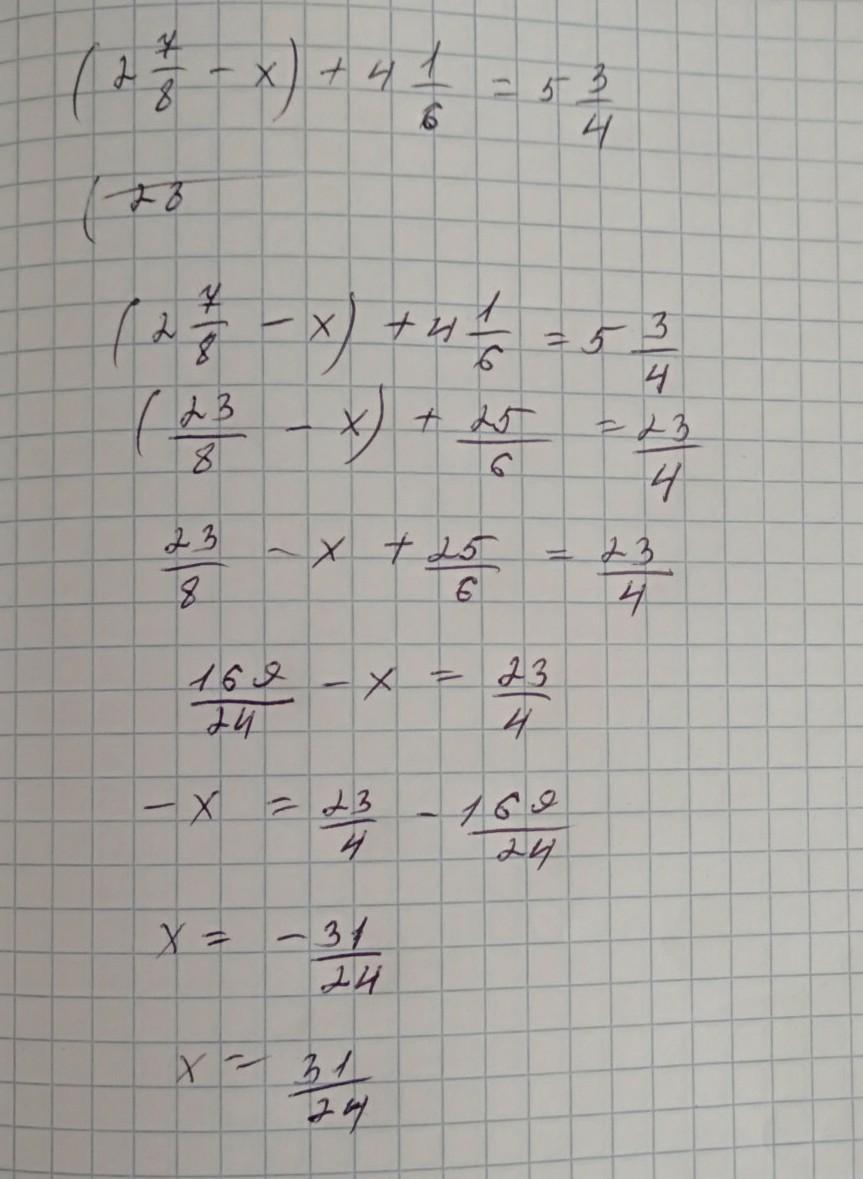 (2 7/8 - x) + 4 1/6 = 5 3/4
(23
(2 7/8 - x) + 4 1/6 = 5 3/4
(23/8 - x) + 25/6 = 23/4
23/8 - x + 25/6 = 23/4
169/24 - x = 23/4
-x = 23/4 - 169/24
x = -31/24
x = 31/24